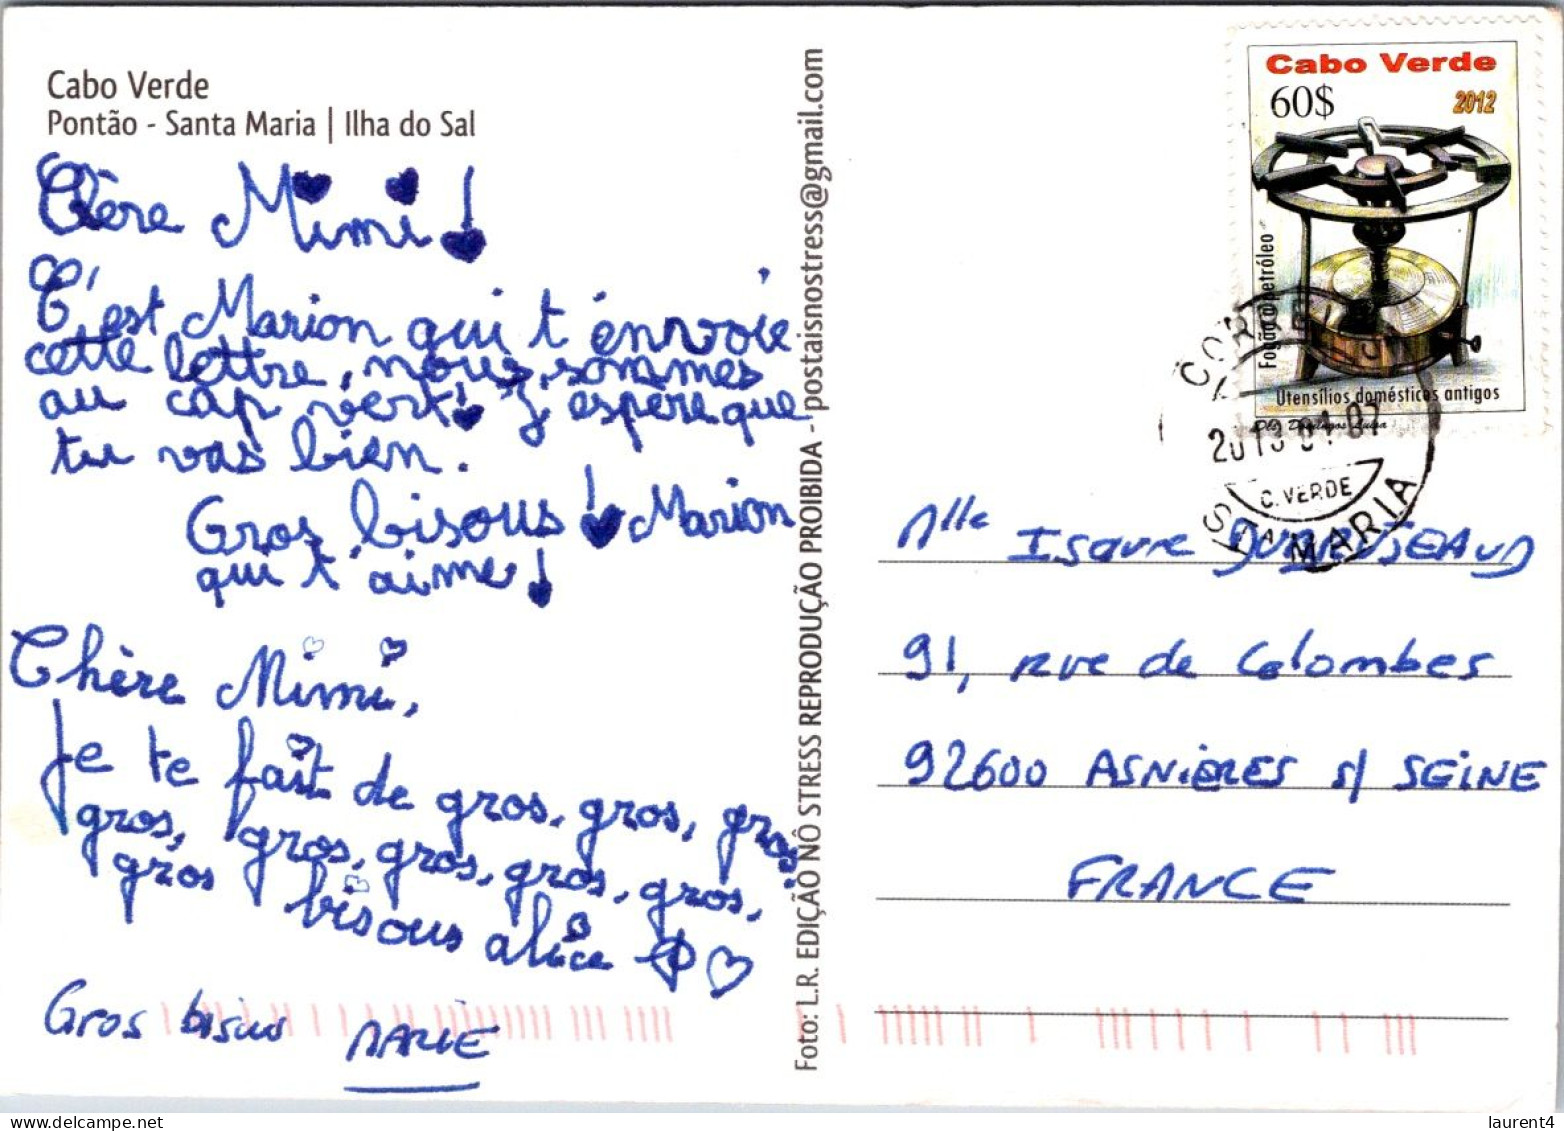 Cabo Verde
Pontão - Santa Maria | Ilha do Sal
Chère Mimi !
C'est Marion qui t'envoie
cette lettre, nous sommes
au cap vert! J'espère que
tu vas bien.
Gros bisous ! Marion
qui t'aime !
Chère Mimi,
Je te fait de gros, gros, gros,
gros, gros, gros, gros, gros,
gros bisous alice
Gros bisous MARIE
Foto: L.R. EDIÇÃO NÔ STRESS REPRODUÇÃO PROIBIDA - postaisnostress@gmail.com
Cabo Verde
60$ 2012
Fogão a petróleo
Utensílios domésticos antigos
Des. Domingos Luisa
2013 01 07
C. VERDE
STA MARIA
Mlle Isaure
91, rue de Colombes
92600 ASNIÈRES s/ SEINE
FRANCE
laurent4